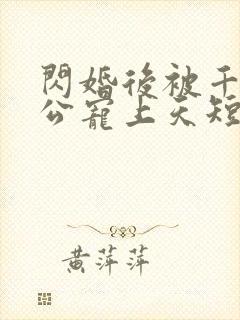 閃婚後被千
公寵上天短
黃萍萍